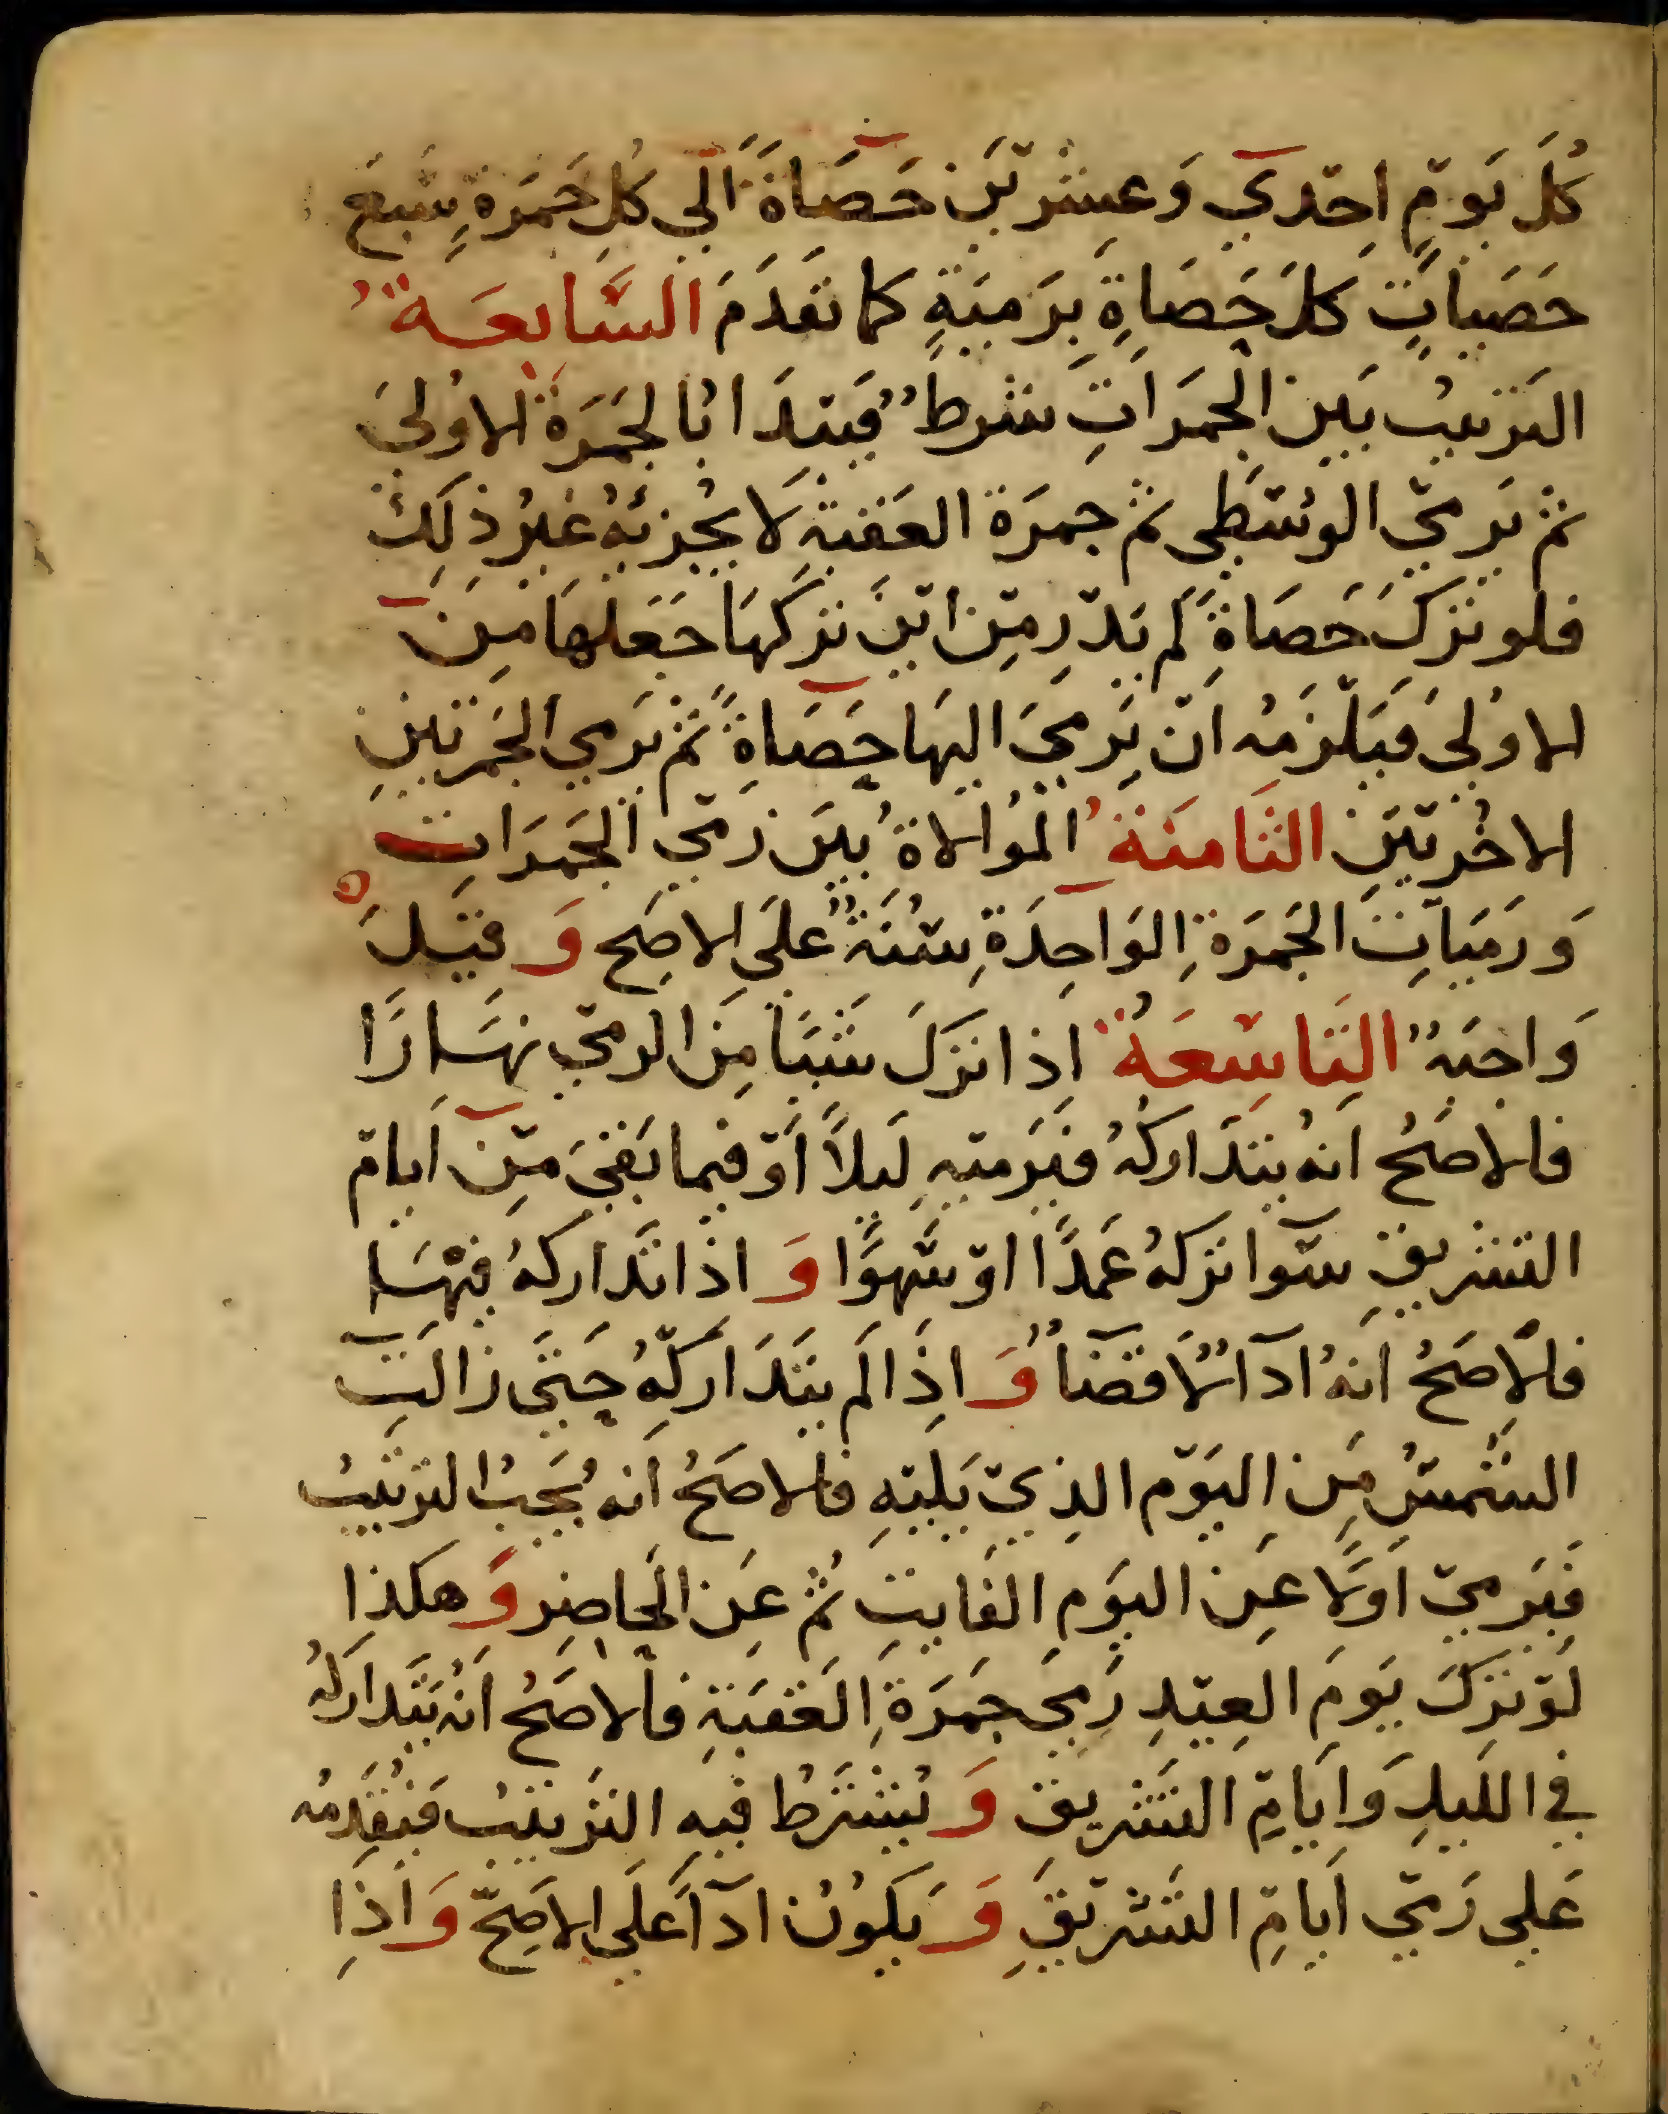 كُلَ يَومٍ اِحدَي وَعِشرينَ حَصَاةً اِلي كُلِ جَمَرةٍ سَبعَ
حَصَياتٍ كلَ حَصَاةٍ بِرَميَةٍ كما تقَدَمَ السَّابعَةُ
التَرتيبُ بَينَ الجمَراتِ شرطٌ فيَبتدَا بالجَمَرَةِ الاوُليَ
ثم يَرميَ الوسُطي ثم جمرَة العَقبَةِ لا يجُزئهُ غيرُ ذلِكَ
فلو ترَكَ حَصَاةً لم يَدرِ مِن اينَ ترَكهَا جَعَلهَا مِنَ
الاوُليَ فيَلزمُه ان يَرميَ اليهَا حَصَاةً ثم يَرمي الجَمرَتينِ
الاخُريَينِ الثَامنَةُ المُوالاةُ بينَ رَمي الجَمَرَاتِ
وَرَمَياتِ الجَمرَةِ الوَاحِدَةِ سُنَةٌ علَي الاصَح وَقيلَ
وَاجبَةٌ التَاسِعَةُ اِذا ترَكَ شيَئا مِنَ الرمي نهَارًا
فالاصَحُ انهُ يتدَاركهُ فيَرميهِ لَيلاً اَو فيما بَقيَ مِن اَيام
التشريقِ سَوا ترَكهُ عَمدًا او سَهوًا وَاذا تدَاركهُ فيهَا
فالاصَحُ انهُ ادآ لا قضآ وَاذِا لَم يتَدَاركهُ حَتيَ زالَتِ
الشمسُ مِنَ اليَوم الذِي يَليهِ فالاصَحُ انه يجَبُ الترتيبُ
فيَرمي اوَلا عَن اليوَمِ الفَايتِ ثُم عَن الحاضِر وَهكذا
لَو ترَكَ يَومَ العِيدِ رَميَ جمَرَةِ العَقبَةِ فالاصَحُ انهُ يتَدَاركهُ
في الليلِ وَايَامِ التشَريقِ وَيُشتَرطُ فيهِ الترَتيبُ فيُقَدِمُه
عَلي رَمي اَيامِ التشَريقِ وَيَكوُن ادآً علَي الاصَحّ وَاذِا